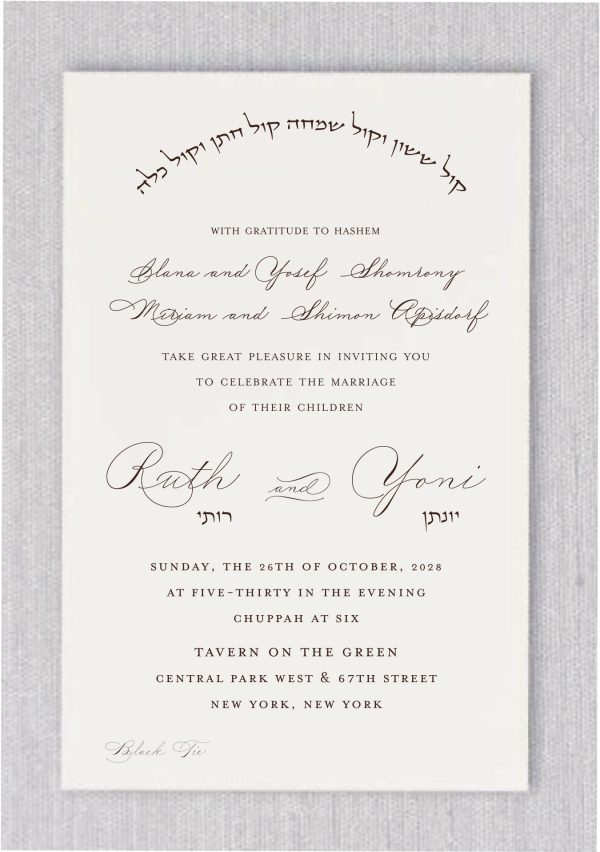 קול ששון וקול שמחה קול חתן וקול כלה
WITH GRATITUDE TO HASHEM
Ilana and Yosef Shomrony
Miriam and Shimon Apisdorf
TAKE GREAT PLEASURE IN INVITING YOU
TO CELEBRATE THE MARRIAGE
OF THEIR CHILDREN
Ruth and Yoni
רותי יונתן
SUNDAY, THE 26TH OF OCTOBER, 2028
AT FIVE-THIRTY IN THE EVENING
CHUPPAH AT SIX
TAVERN ON THE GREEN
CENTRAL PARK WEST & 67TH STREET
NEW YORK, NEW YORK
Black Tie